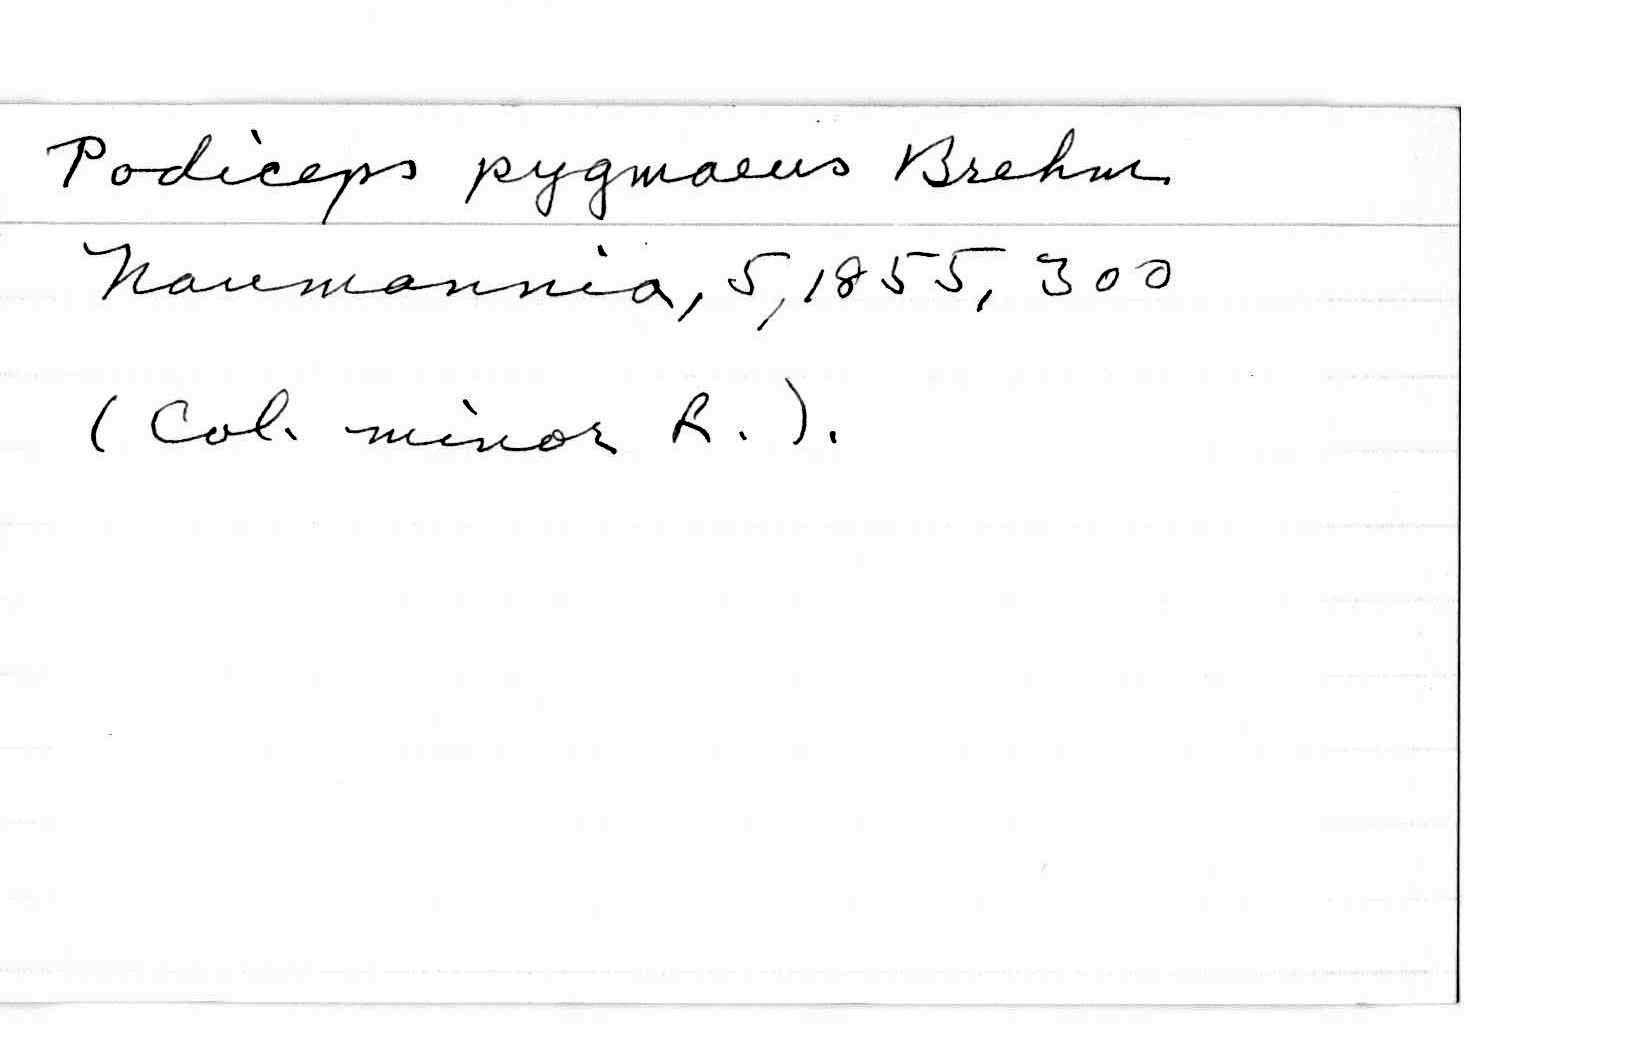 Podiceps pygmaeus Brehm
Naumannia, 5, 1855, 300
(Col. minor R.).